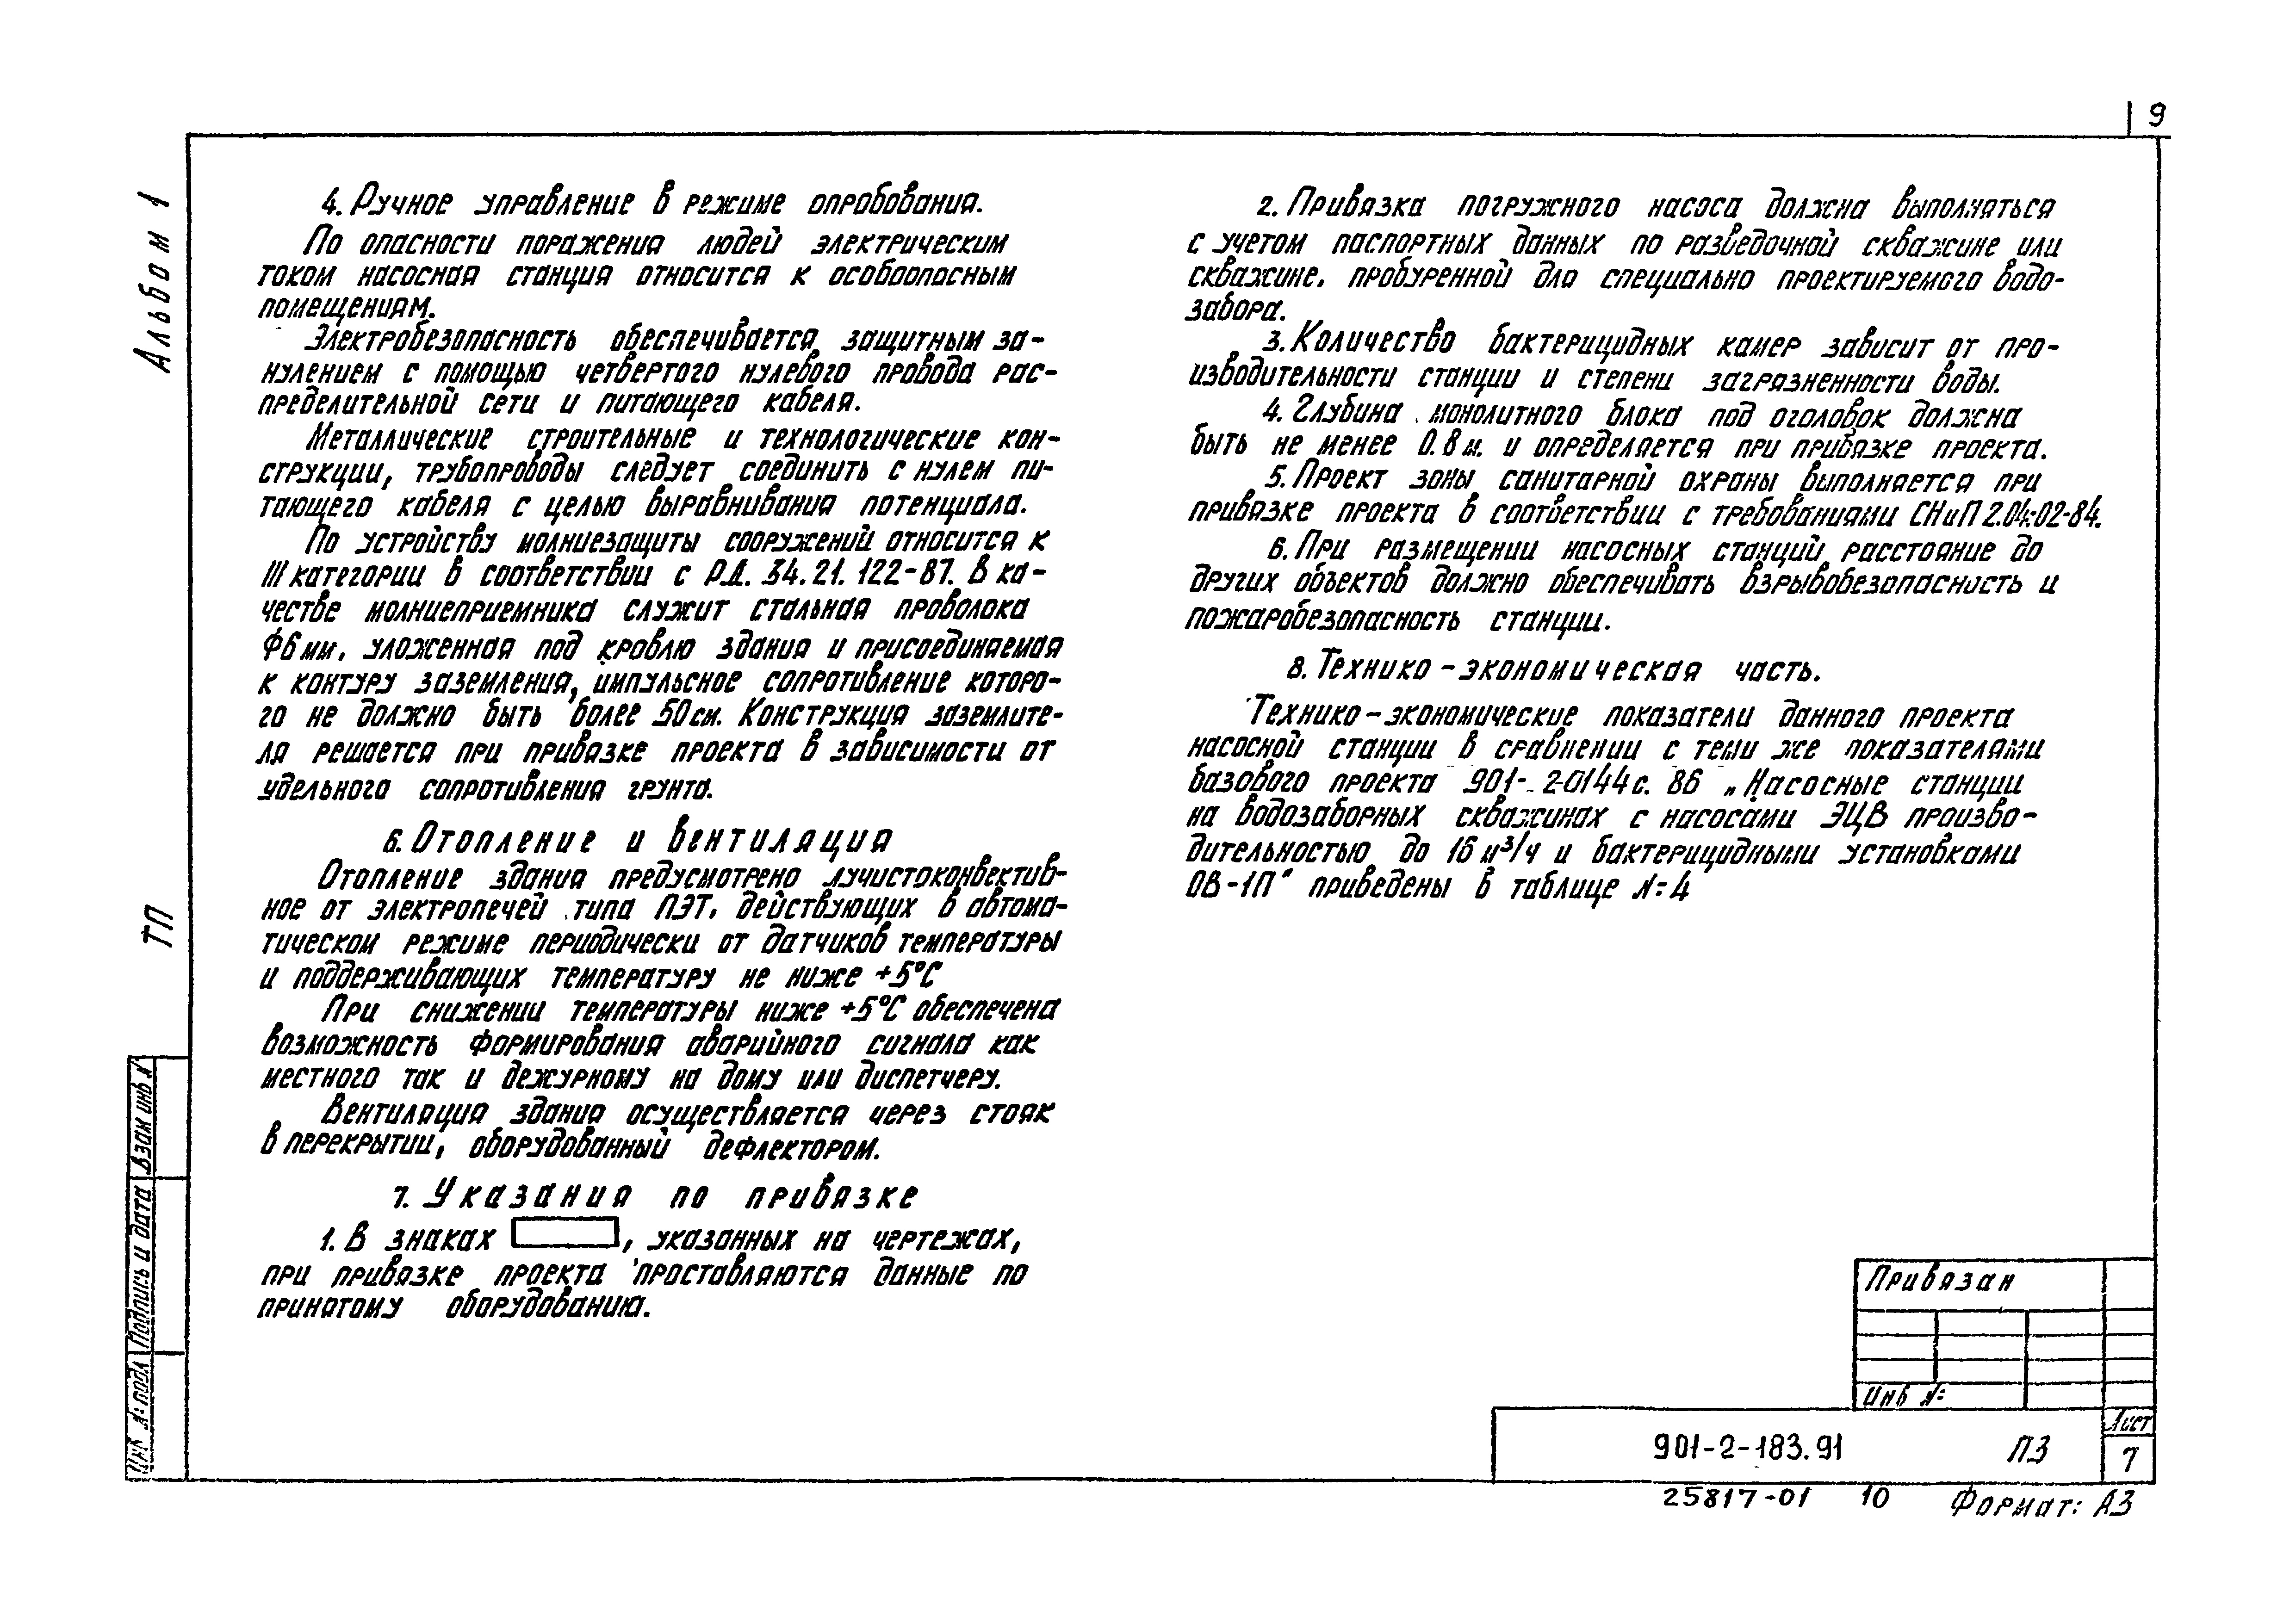 9
Альбом 1
ТП
4. Ручное управление в режиме опробования.
По опасности поражения людей электрическим
током насосная станция относится к особоопасным
помещениям.
Электробезопасность обеспечивается защитным за-
нулением с помощью четвертого нулевого провода рас-
пределительной сети и питающего кабеля.
Металлические строительные и технологические кон-
струкции, трубопроводы следует соединить с нулем пи-
тающего кабеля с целью выравнивания потенциала.
По устройству молниезащиты сооружений относится к
III категории в соответствии с РД. 34.21.122-87. В ка-
честве молниеприемника служит стальная проволока
Ф6мм, уложенная под кровлю здания и присоединяемая
к контуру заземления, импульсное сопротивление которо-
го не должно быть более 50см. Конструкция заземлите-
ля решается при привязке проекта в зависимости от
удельного сопротивления грунта.
6. Отопление и вентиляция
Отопление здания предусмотрено лучистоконвектив-
ное от электропечей типа ПЭТ, действующих в автома-
тическом режиме периодически от датчиков температуры
и поддерживающих температуру не ниже +5°С
При снижении температуры ниже +5°С обеспечена
возможность формирования аварийного сигнала как
местного так и дежурному на дому или диспетчеру.
Вентиляция здания осуществляется через стояк
в перекрытии, оборудованный дефлектором.
7. Указания по привязке
1. В знаках , указанных на чертежах,
при привязке проекта проставляются данные по
принятому оборудованию.
2. Привязка погружного насоса должна выполняться
с учетом паспортных данных по разведочной скважине или
скважине, пробуренной для специально проектируемого водо-
забора.
3. Количество бактерицидных камер зависит от про-
изводительности станции и степени загрязненности воды.
4. Глубина монолитного блока под оголовок должна
быть не менее 0.8м. и определяется при привязке проекта.
5. Проект зоны санитарной охраны выполняется при
привязке проекта в соответствии с требованиями СНиП 2.04.02-84.
6. При размещении насосных станций расстояние до
других объектов должно обеспечивать взрывобезопасность и
пожаробезопасность станции.
8. Технико-экономическая часть.
Технико-экономические показатели данного проекта
насосной станции в сравнении с теми же показателями
базового проекта 901-2-0144с.86 „Насосные станции
на водозаборных скважинах с насосами ЭЦВ произво-
дительностью до 16 м³/ч и бактерицидными установками
ОВ-1П" приведены в таблице №4
Взам инв №
Подпись и дата
Инв № подл
Привязан
Инв №
901-2-183.91 ПЗ
Лист
7
25817-01 10 Формат: А3